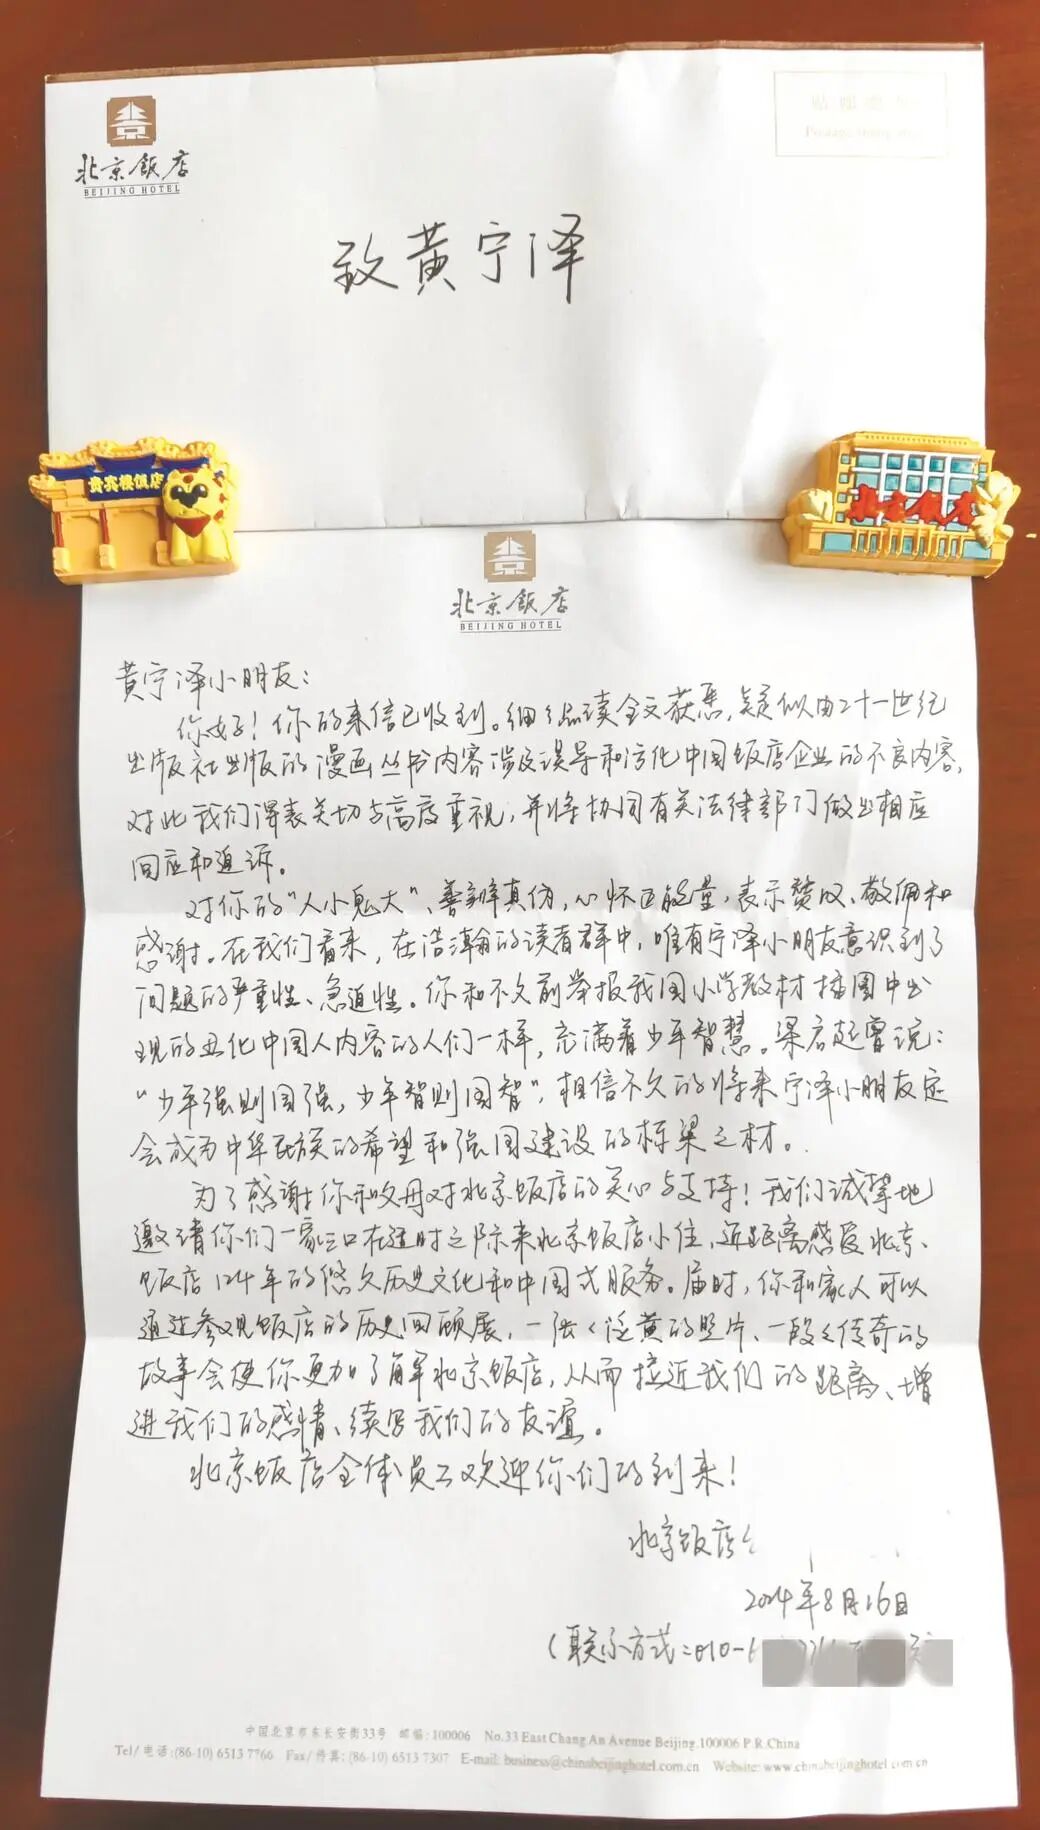 北京飯店
BEIJING HOTEL
贴邮票处
Postage
致黄宁泽
贵宾楼饭店
北京飯店
北京飯店
BEIJING HOTEL
黄宁泽小朋友：
你好！你的来信已收到。细细品读全文获悉，疑似由二十一世纪
出版社出版的漫画丛书内容涉及误导和污化中国饭店企业的不良内容，
对此我们深表关切与高度重视，并将协同有关法律部门做出相应
回应和追诉。
对你的“人小鬼大”、善辨真伪，心怀正能量，表示赞叹、敬佩和
感谢。在我们看来，在浩瀚的读者群中，唯有宁泽小朋友意识到了
问题的严重性、急迫性。你和不久前举报我国小学教材插图中出
现的丑化中国人内容的人们一样，充满着少年智慧。梁启超曾说：
“少年强则国强，少年智则国智”，相信不久的将来宁泽小朋友定
会成为中华民族的希望和强国建设的栋梁之材。
为了感谢你和父母对北京饭店的关心与支持！我们诚挚地
邀请你们一家三口在适时之际来北京饭店小住，近距离感受北京
饭店124年的悠久历史文化和中国式服务。届时，你和家人可以
通过参观饭店的历史回顾展，一张张泛黄的照片、一段段传奇的
故事会使你更加了解北京饭店，从而拉近我们的距离、增
进我们的感情、续写我们的友谊。
北京饭店全体员工欢迎你们的到来！
北京饭店
2024年8月16日
（联系方式：010-6
中国北京市东长安街33号 邮编：100006 No.33 East Chang An Avenue Beijing.100006 P.R.China
Tel/电话：(86-10) 6513 7766 Fax/传真：(86-10) 6513 7307 E-mail: business@chinabeijinghotel.com.cn Website: www.chinabeijinghotel.com.cn